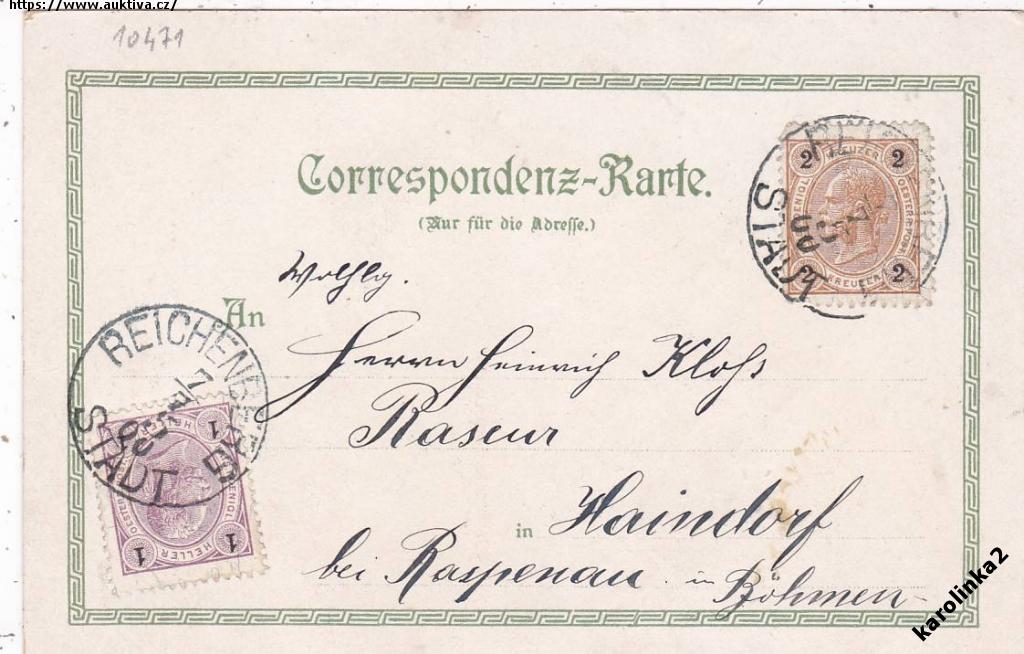 https://www.auktiva.cz/
10471
Correspondenz-Karte.
(Nur für die Adresse.)
2 KREUZER 2
KENIGL OESTERR POST
2 KREUZER 2
STADT
Wolhlg.
An
Herrn Heinrich Kloss
Raseur
in Haindorf
bei Raspenau in Böhmen
REICHENBERG
STADT
1 HELLER 1
karolinka2